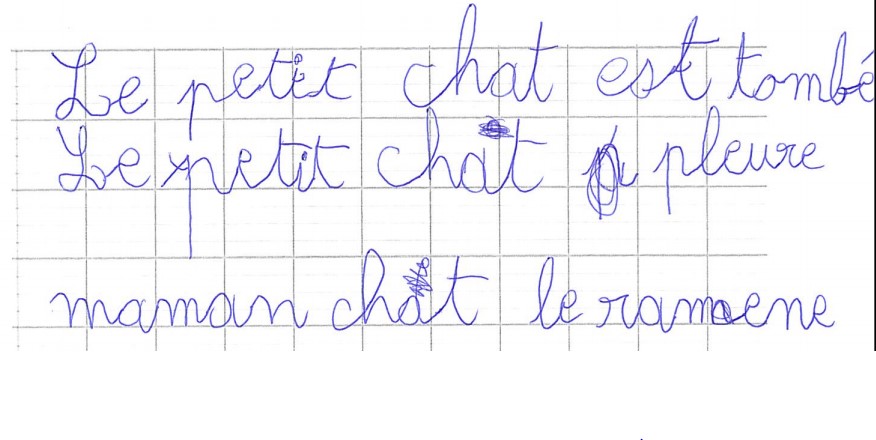 Le petit chat est tombé
Le petit chat pleure
maman chat le ramoene